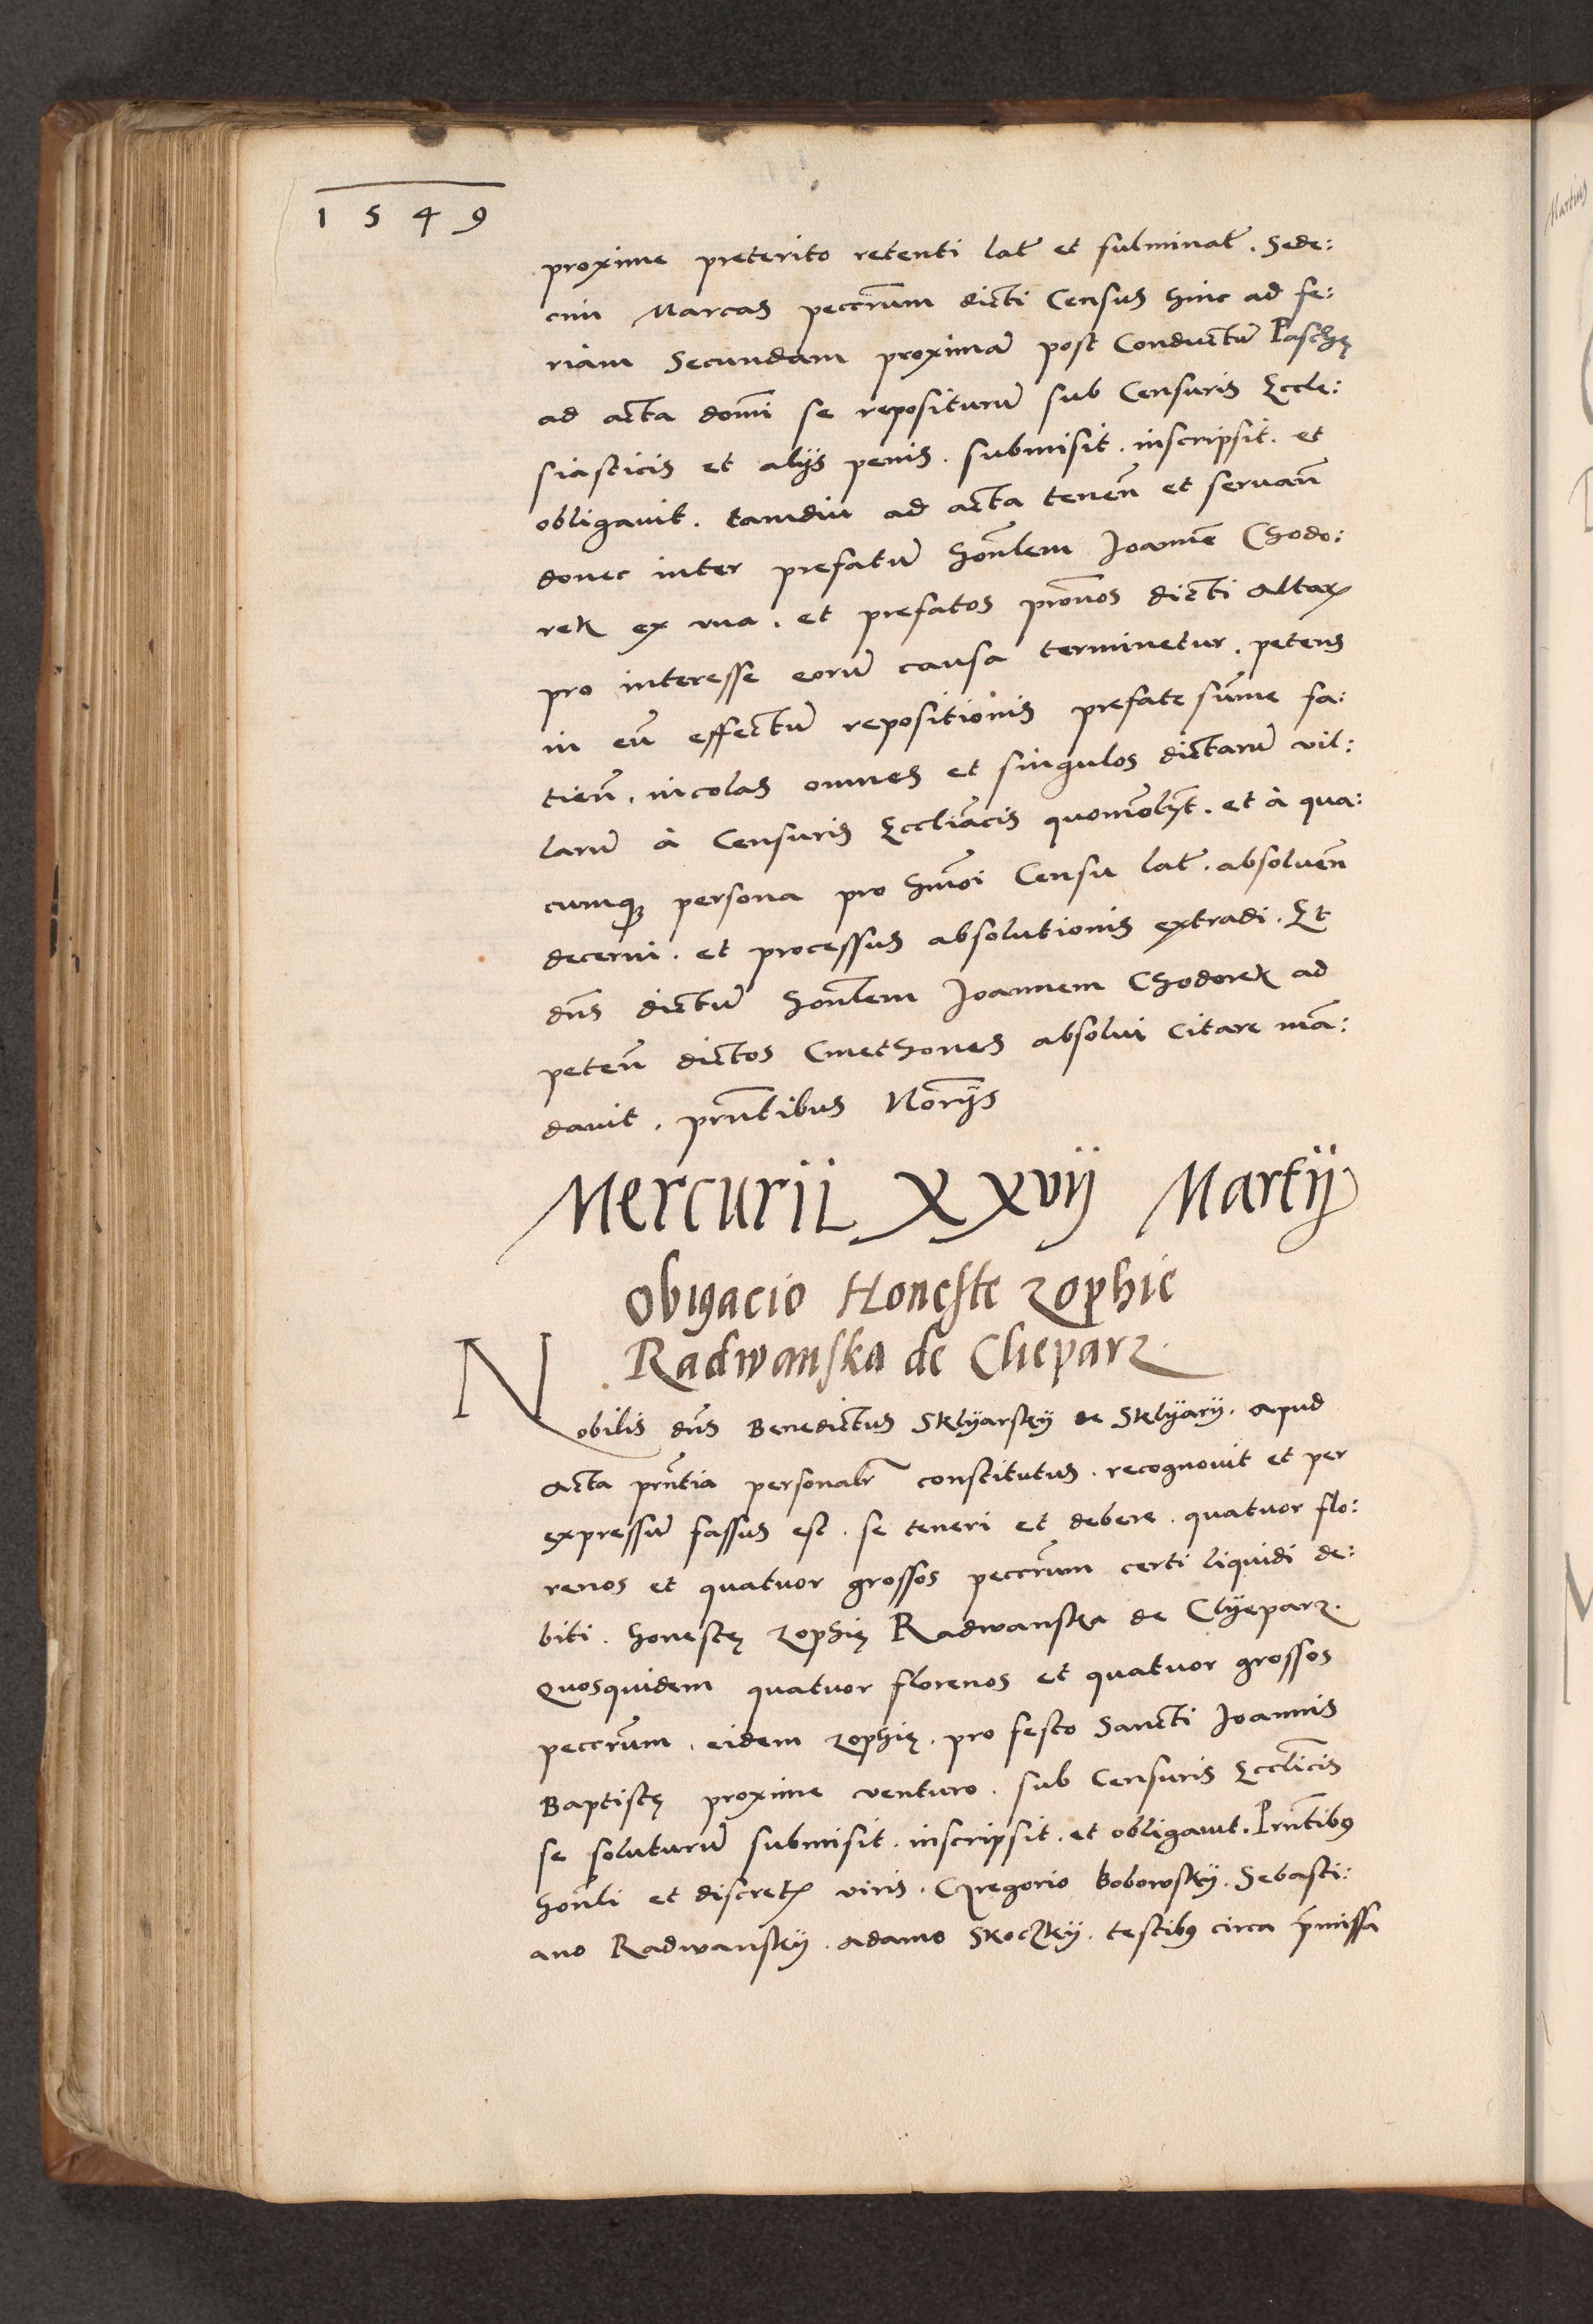 1549
proxime preterito retenti lat̄ et fulminat̄. Sede:
cim Marcas peccrūm dicti Census hinc ad fe:
riam Secundam proximā post Conductū Paschę
ad acta domī se repositurū sub Censuris Eccle:
siasticis et alijs penis. submisit. inscripsit. et
obligavit. tamdiu ad acta tenen̄ et servan̄
donec inter prefatū hon̄lem Joannē Chodo:
rek ex vna. et prefatos pron̄os dicti altaꝝ
pro interesse eorū causa terminetur. petens
in eū effectū repositionis prefate sūme fa:
tien̄. incolas omnes et singulos dictarū vil:
larū à Censuris Eccliācis quomōlȳt. et à qua:
cumqꝫ persona pro hmōi Censu lat̄. absolven̄
decerni. et processus absolutionis extradi. Et
dn̄s dictū hon̄lem Joannem Chodorek ad
peten̄ dictos Cmethones absolui citare mā:
davit. prn̄tibus Norījs
Mercurii XXvij Martij
Obigacio Honeste zophie
Radwanska de Clieparz.
Nobilis dn̄s Benedictus Sklyarsky de Sklyary. apud
Acta prn̄tia personalr̄ constitutus. recognovit et per
expressū fassus est. se teneri et debere. quatuor flo:
renos et quatuor grossos peccrūm certi liquidi de:
biti. honestę zophię Radwanska de Clyeparz.
Quosquidem quatuor florenos et quatuor grossos
peccrūm. eidem zophię. pro festo Sancti Joannis
Baptistę proxime venturo. sub Censuris Ecclīcis
se soluturū submisit. inscripsit. et obligavit. Prn̄tibꝯ
hon̄li et discretꝭ viris. Gregorio Bobowsky. Sebasti:
ano Radwansky. adamo Skoczky. testibꝯ circa p̄missa
Martius